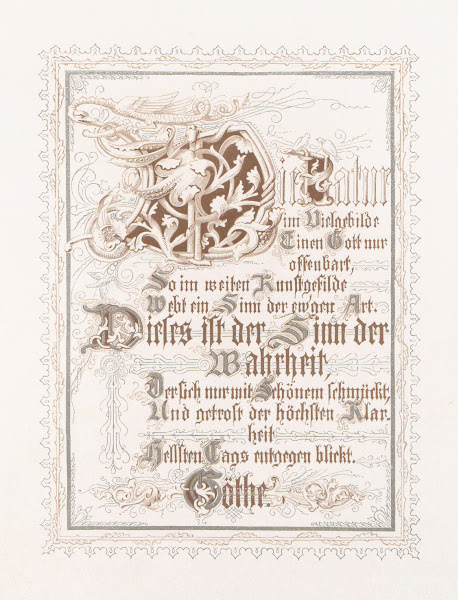 Die Natur
im Vielgebilde
Einen Gott nur
offenbart,
So im weiten Kunstgefilde
Webt ein Sinn der ew'gen Art.
Dieses ist der Sinn der
Wahrheit,
Der sich nur mit Schönem schmückt,
Und getrost der höchsten Klar
heit
Hellsten Tags entgegen blickt.
Göthe.